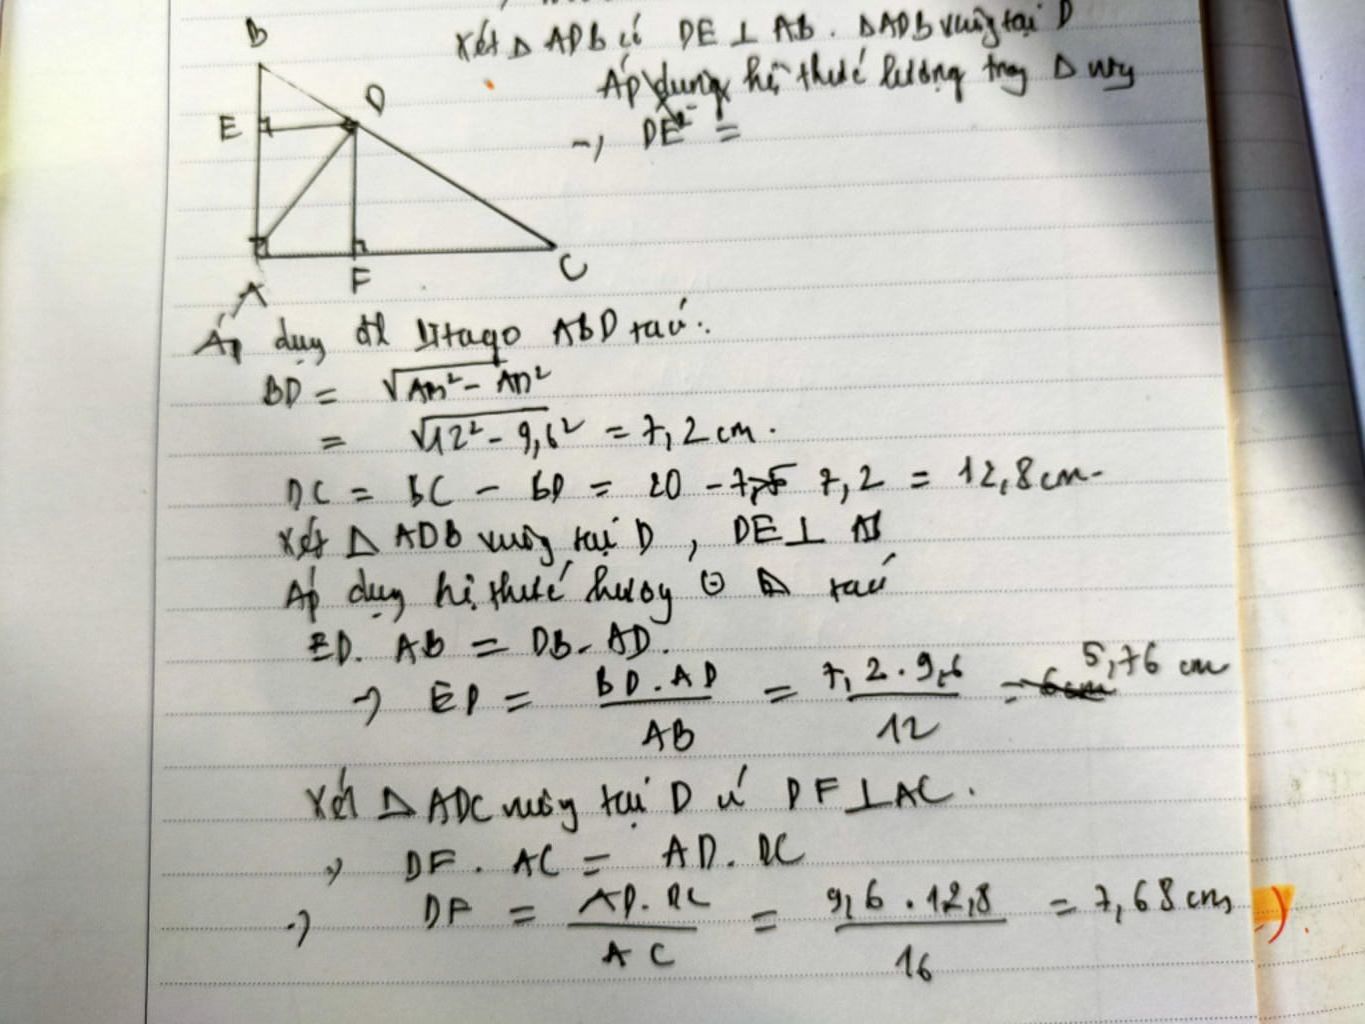 Xét Δ ADB có DE ⊥ AB. ΔADB vuông tại D
Áp dụng hệ thức lượng trong Δ vuông
→ DE² =
B
E
D
A
F
C
Áp dụng đl Pitago ABD ta có:
BD = √AB² - AD²
= √12² - 9,6² = 7,2 cm.
DC = BC - BD = 20 - 7,2 = 12,8 cm.
Xét Δ ADB vuông tại D, DE ⊥ AB
Áp dụng hệ thức lượng Δ ta có
ED. AB = DB. AD.
→ ED = BD.AD / AB = 7,2.9,6 / 12 = 5,76 cm
Xét Δ ADC vuông tại D có DF⊥AC.
→ DF. AC = AD. DC
→ DF = AD.DC / AC = 9,6.12,8 / 16 = 7,68 cm